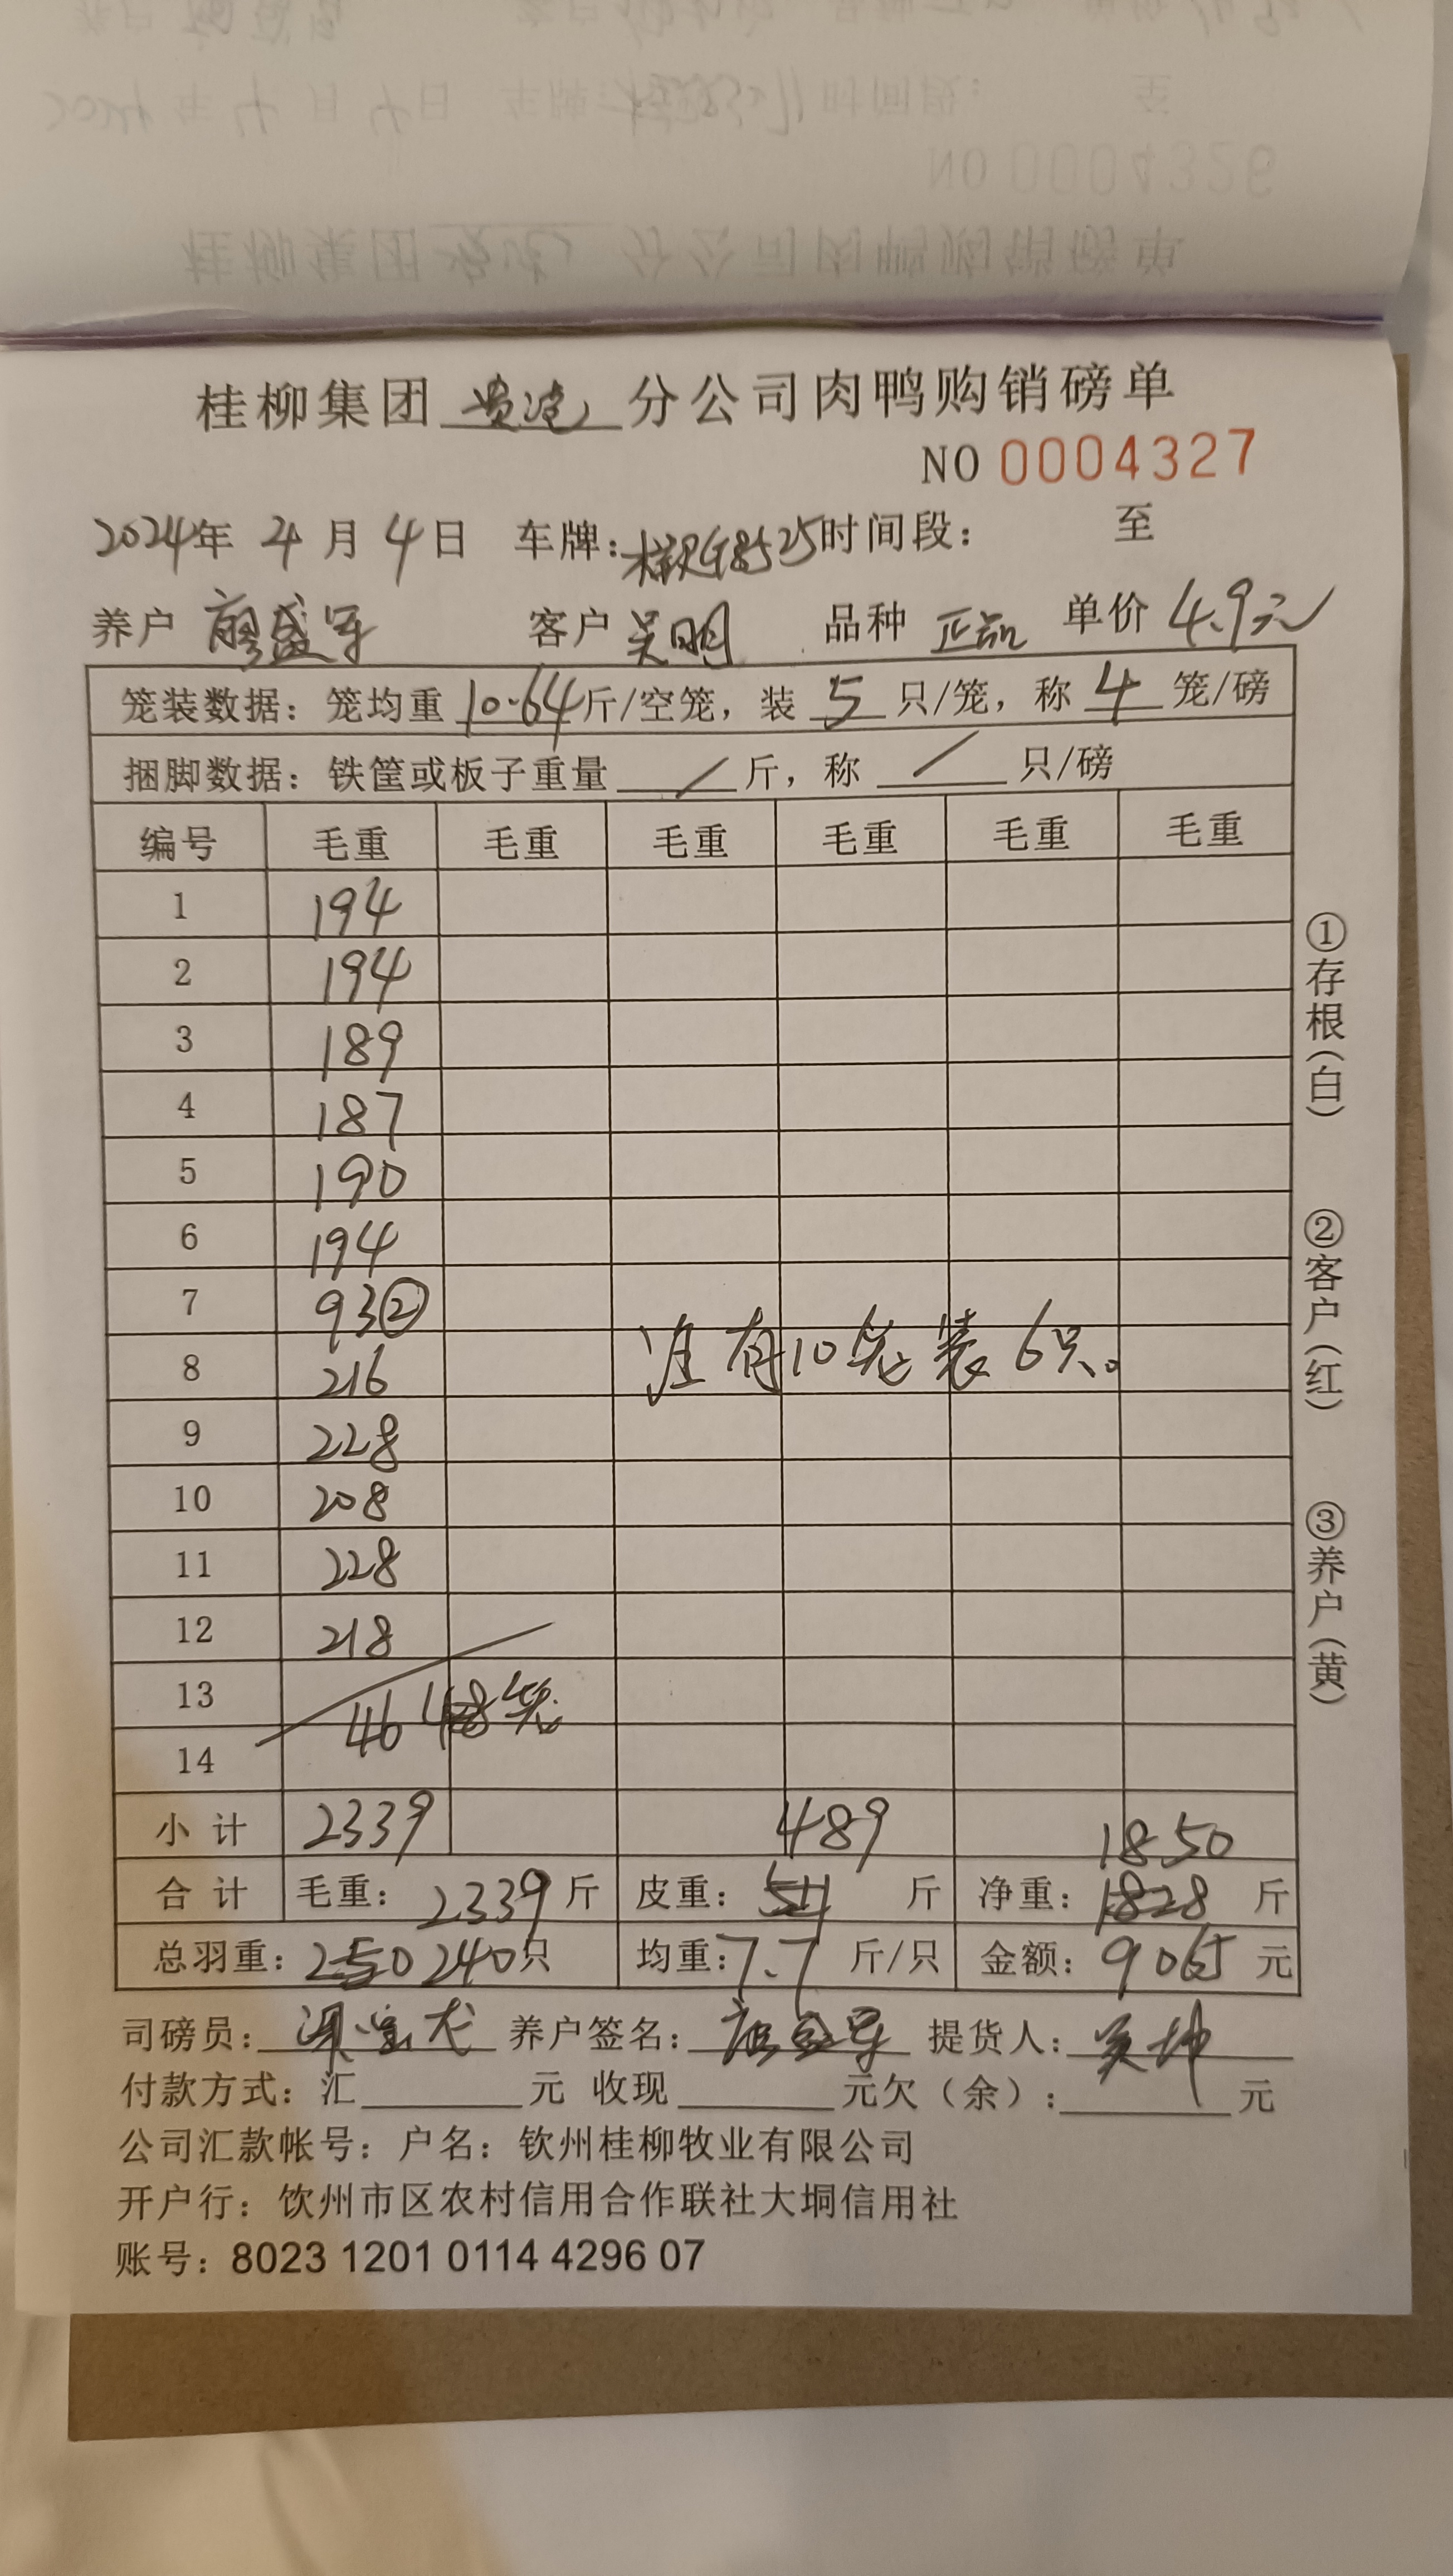 桂柳集团 贵港 分公司肉鸭购销磅单
NO 0004327
2024年 4 月 4 日 车牌: 时间段: 至
养户 廖盛军 客户 吴明 品种 正品 单价 4.9元
笼装数据: 笼均重 10.64 斤/空笼, 装 5 只/笼, 称 4 笼/磅
捆脚数据: 铁筐或板子重量 / 斤, 称 / 只/磅
编号 毛重 毛重 毛重 毛重 毛重 毛重
1 194
2 194
3 189
4 187
5 190
6 194
7 93②
8 216 注有10笼装6只。
9 228
10 208
11 228
12 218
13 46 48笼
14
小计 2339 489 1850
合计 毛重: 2339 斤 皮重: 511 斤 净重: 1828 斤
总羽重: 250 240只 均重: 7.7 斤/只 金额: 9065 元
司磅员: 养户签名: 提货人: 吴坤
付款方式: 汇 元 收现 元欠(余): 元
公司汇款帐号: 户名: 钦州桂柳牧业有限公司
开户行: 饮州市区农村信用合作联社大垌信用社
账号: 8023 1201 0114 4296 07
①存根(白)
②客户(红)
③养户(黄)